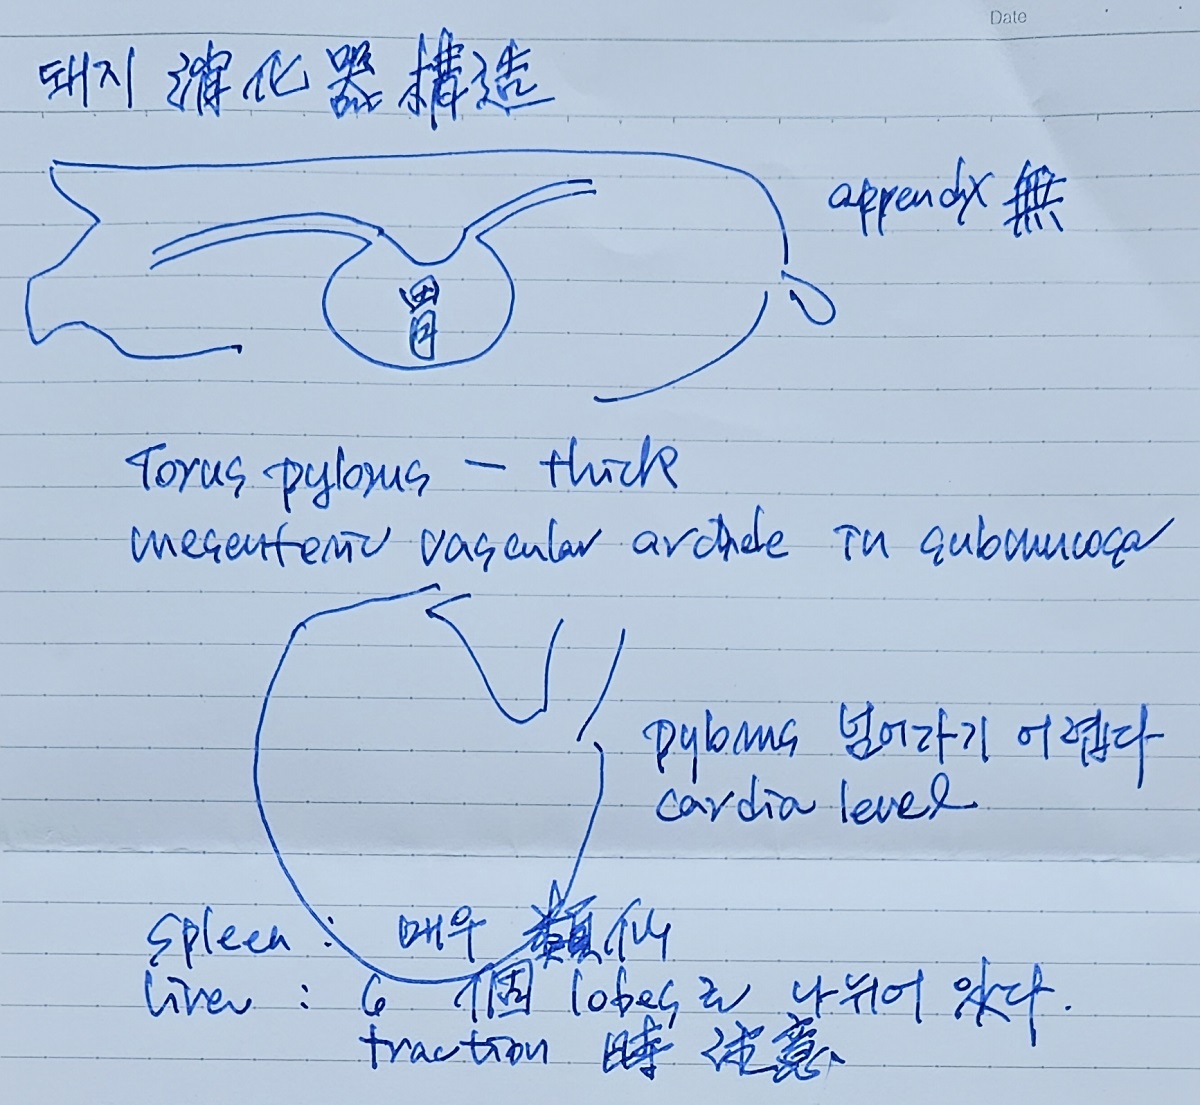 Date
돼지 消化器 構造
appendix 無
胃
Torus pylorus — thick
mesenteric vascular arcade in submucosa
pylorus 넘어가기 어렵다
cardia level
spleen : 매우 類似
liver : 6 個 lobes로 나뉘어 있다.
traction 時 注意